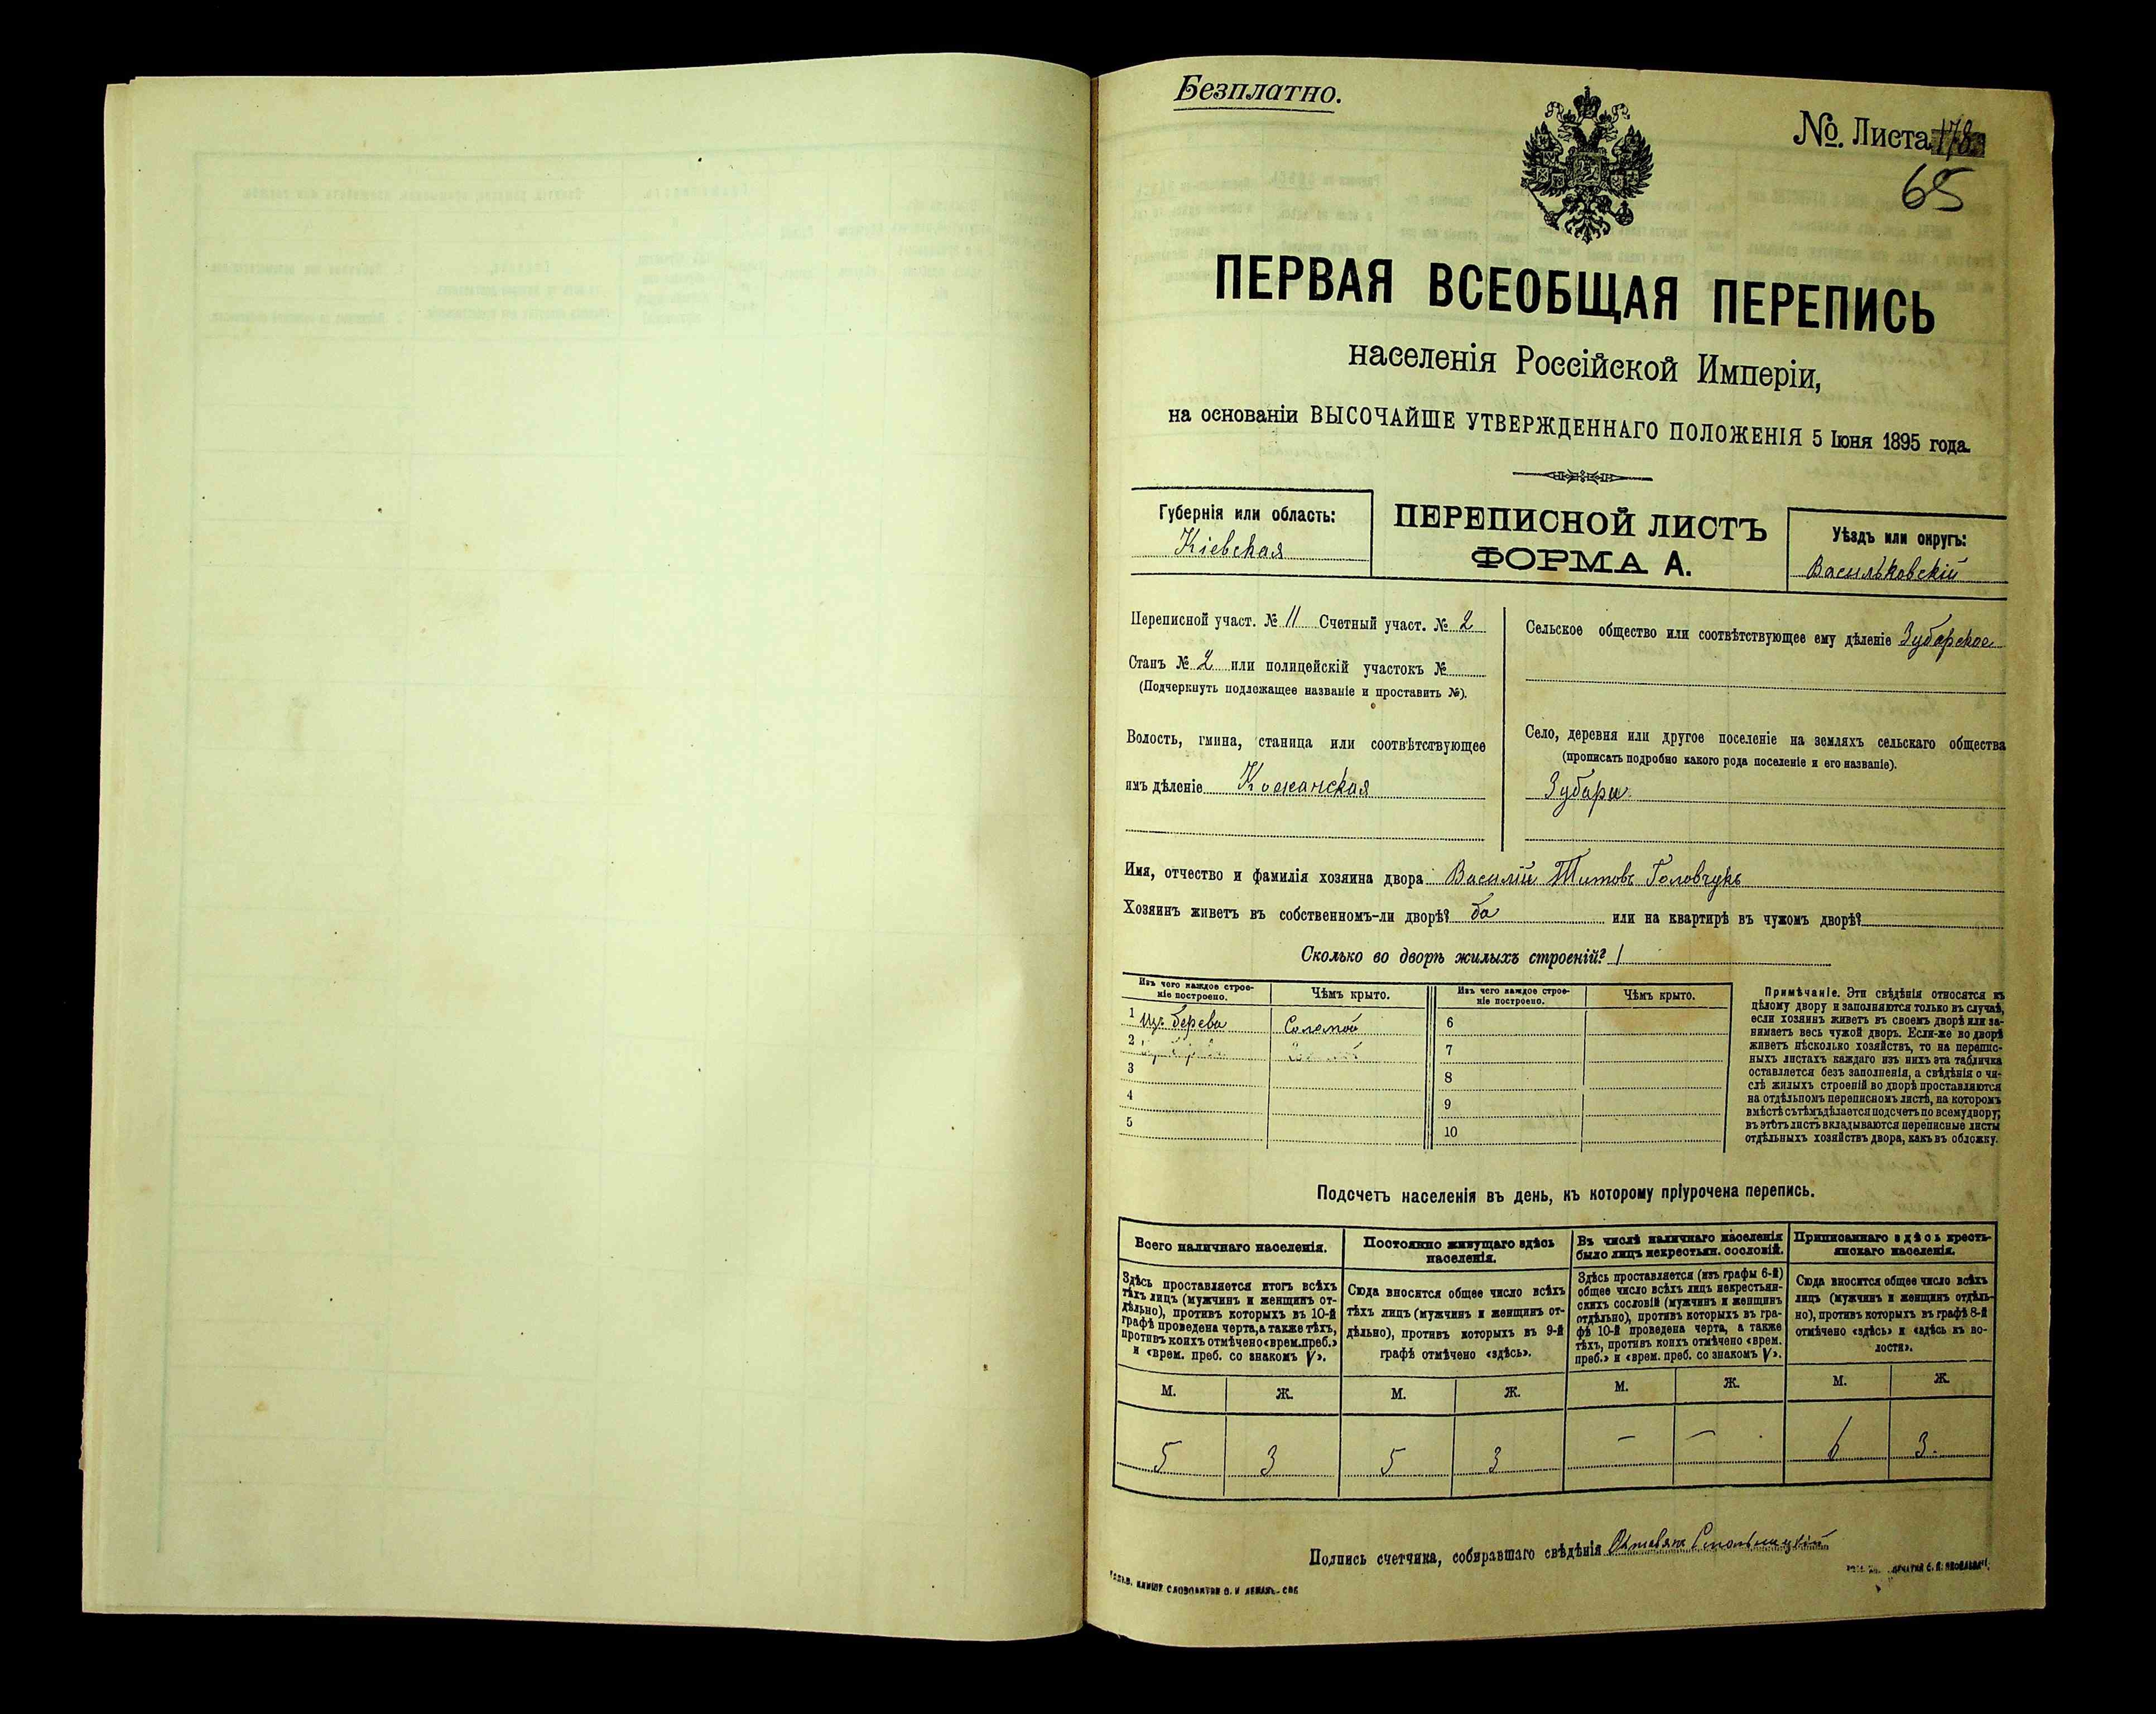 Безплатно.
№. Листа 178.
65
ПЕРВАЯ ВСЕОБЩАЯ ПЕРЕПИСЬ
населенія Россійской Имперіи,
на основаніи ВЫСОЧАЙШЕ УТВЕРЖДЕННАГО ПОЛОЖЕНІЯ 5 Іюня 1895 года.
Губернія или область:
Кіевская
ПЕРЕПИСНОЙ ЛИСТЪ
ФОРМА А.
Уѣздъ или округъ:
Васильковскій
Переписной участ. № 11 Счетный участ. № 2
Станъ № 2 или полицейскій участокъ №
(Подчеркнуть подложащее названіе и проставить №).
Волость, гмина, станица или соотвѣтствующее
имъ дѣленіе Кожанская
Сельское общество или соотвѣтствующее ему дѣленіе Зубарское
Село, деревня или другое поселеніе на земляхъ сельскаго общества
(прописать подробно какого рода поселеніе и его названіе).
Зубари
Имя, отчество и фамилія хозяина двора Василій Титовъ Головчукъ
Хозяинъ живетъ въ собственномъ-ли дворѣ? да или на квартирѣ въ чужомъ дворѣ?
Сколько во дворѣ жилыхъ строеній? 1
Изъ чего каждое строе-
ніе построено.
Чѣмъ крыто.
Изъ чего каждое строе-
ніе построено.
Чѣмъ крыто.
1 Изъ дерева Соломой
2
3
4
5
6
7
8
9
10
Примѣчаніе. Эти свѣдѣнія относятся къ
цѣлому двору и заполняются только въ случаѣ,
если хозяинъ живетъ въ своемъ дворѣ или за-
нимаетъ весь чужой дворъ. Если-же во дворѣ
живетъ нѣсколько хозяйствъ, то на перепис-
ныхъ листахъ каждаго изъ нихъ эта табличка
оставляется безъ заполненія, а свѣдѣнія о чи-
слѣ жилыхъ строеній во дворѣ проставляются
на отдѣльномъ переписномъ листѣ, на которомъ
вмѣстѣ съ тѣмъ дѣлается подсчетъ по всему двору;
въ этотъ листъ вкладываются переписные листы
отдѣльныхъ хозяйствъ двора, какъ въ обложку.
Подсчетъ населенія въ день, къ которому пріурочена перепись.
Всего наличнаго населенія.
Здѣсь проставляется итогъ всѣхъ
тѣхъ лицъ (мужчинъ и женщинъ от-
дѣльно), противъ которыхъ въ 10-й
графѣ проведена черта, а также тѣхъ,
противъ коихъ отмѣчено «врем. преб.»
и «врем. преб. со знакомъ V».
Постоянно живущаго здѣсь
населенія.
Сюда вносится общее число всѣхъ
тѣхъ лицъ (мужчинъ и женщинъ от-
дѣльно), противъ которыхъ въ 9-й
графѣ отмѣчено «здѣсь».
Въ числѣ наличнаго населенія
было лицъ некрестьян. сословій.
Здѣсь проставляется (изъ графы 6-й)
общее число всѣхъ лицъ некрестьян-
скихъ сословій (мужчинъ и женщинъ
отдѣльно), противъ которыхъ въ гра-
фѣ 10-й проведена черта, а также
тѣхъ, противъ коихъ отмѣчено «врем.
преб.» и «врем. преб. со знакомъ V».
Приписаннаго здѣсь кресть-
янскаго населенія.
Сюда вносится общее число всѣхъ
лицъ (мужчинъ и женщинъ отдѣль-
но), противъ которыхъ въ графѣ 8-й
отмѣчено «здѣсь» и «здѣсь къ во-
лости».
М. Ж. М. Ж. М. Ж. М. Ж.
5 3 5 3 — — 6 3.
Подпись счетчика, собиравшаго свѣдѣнія